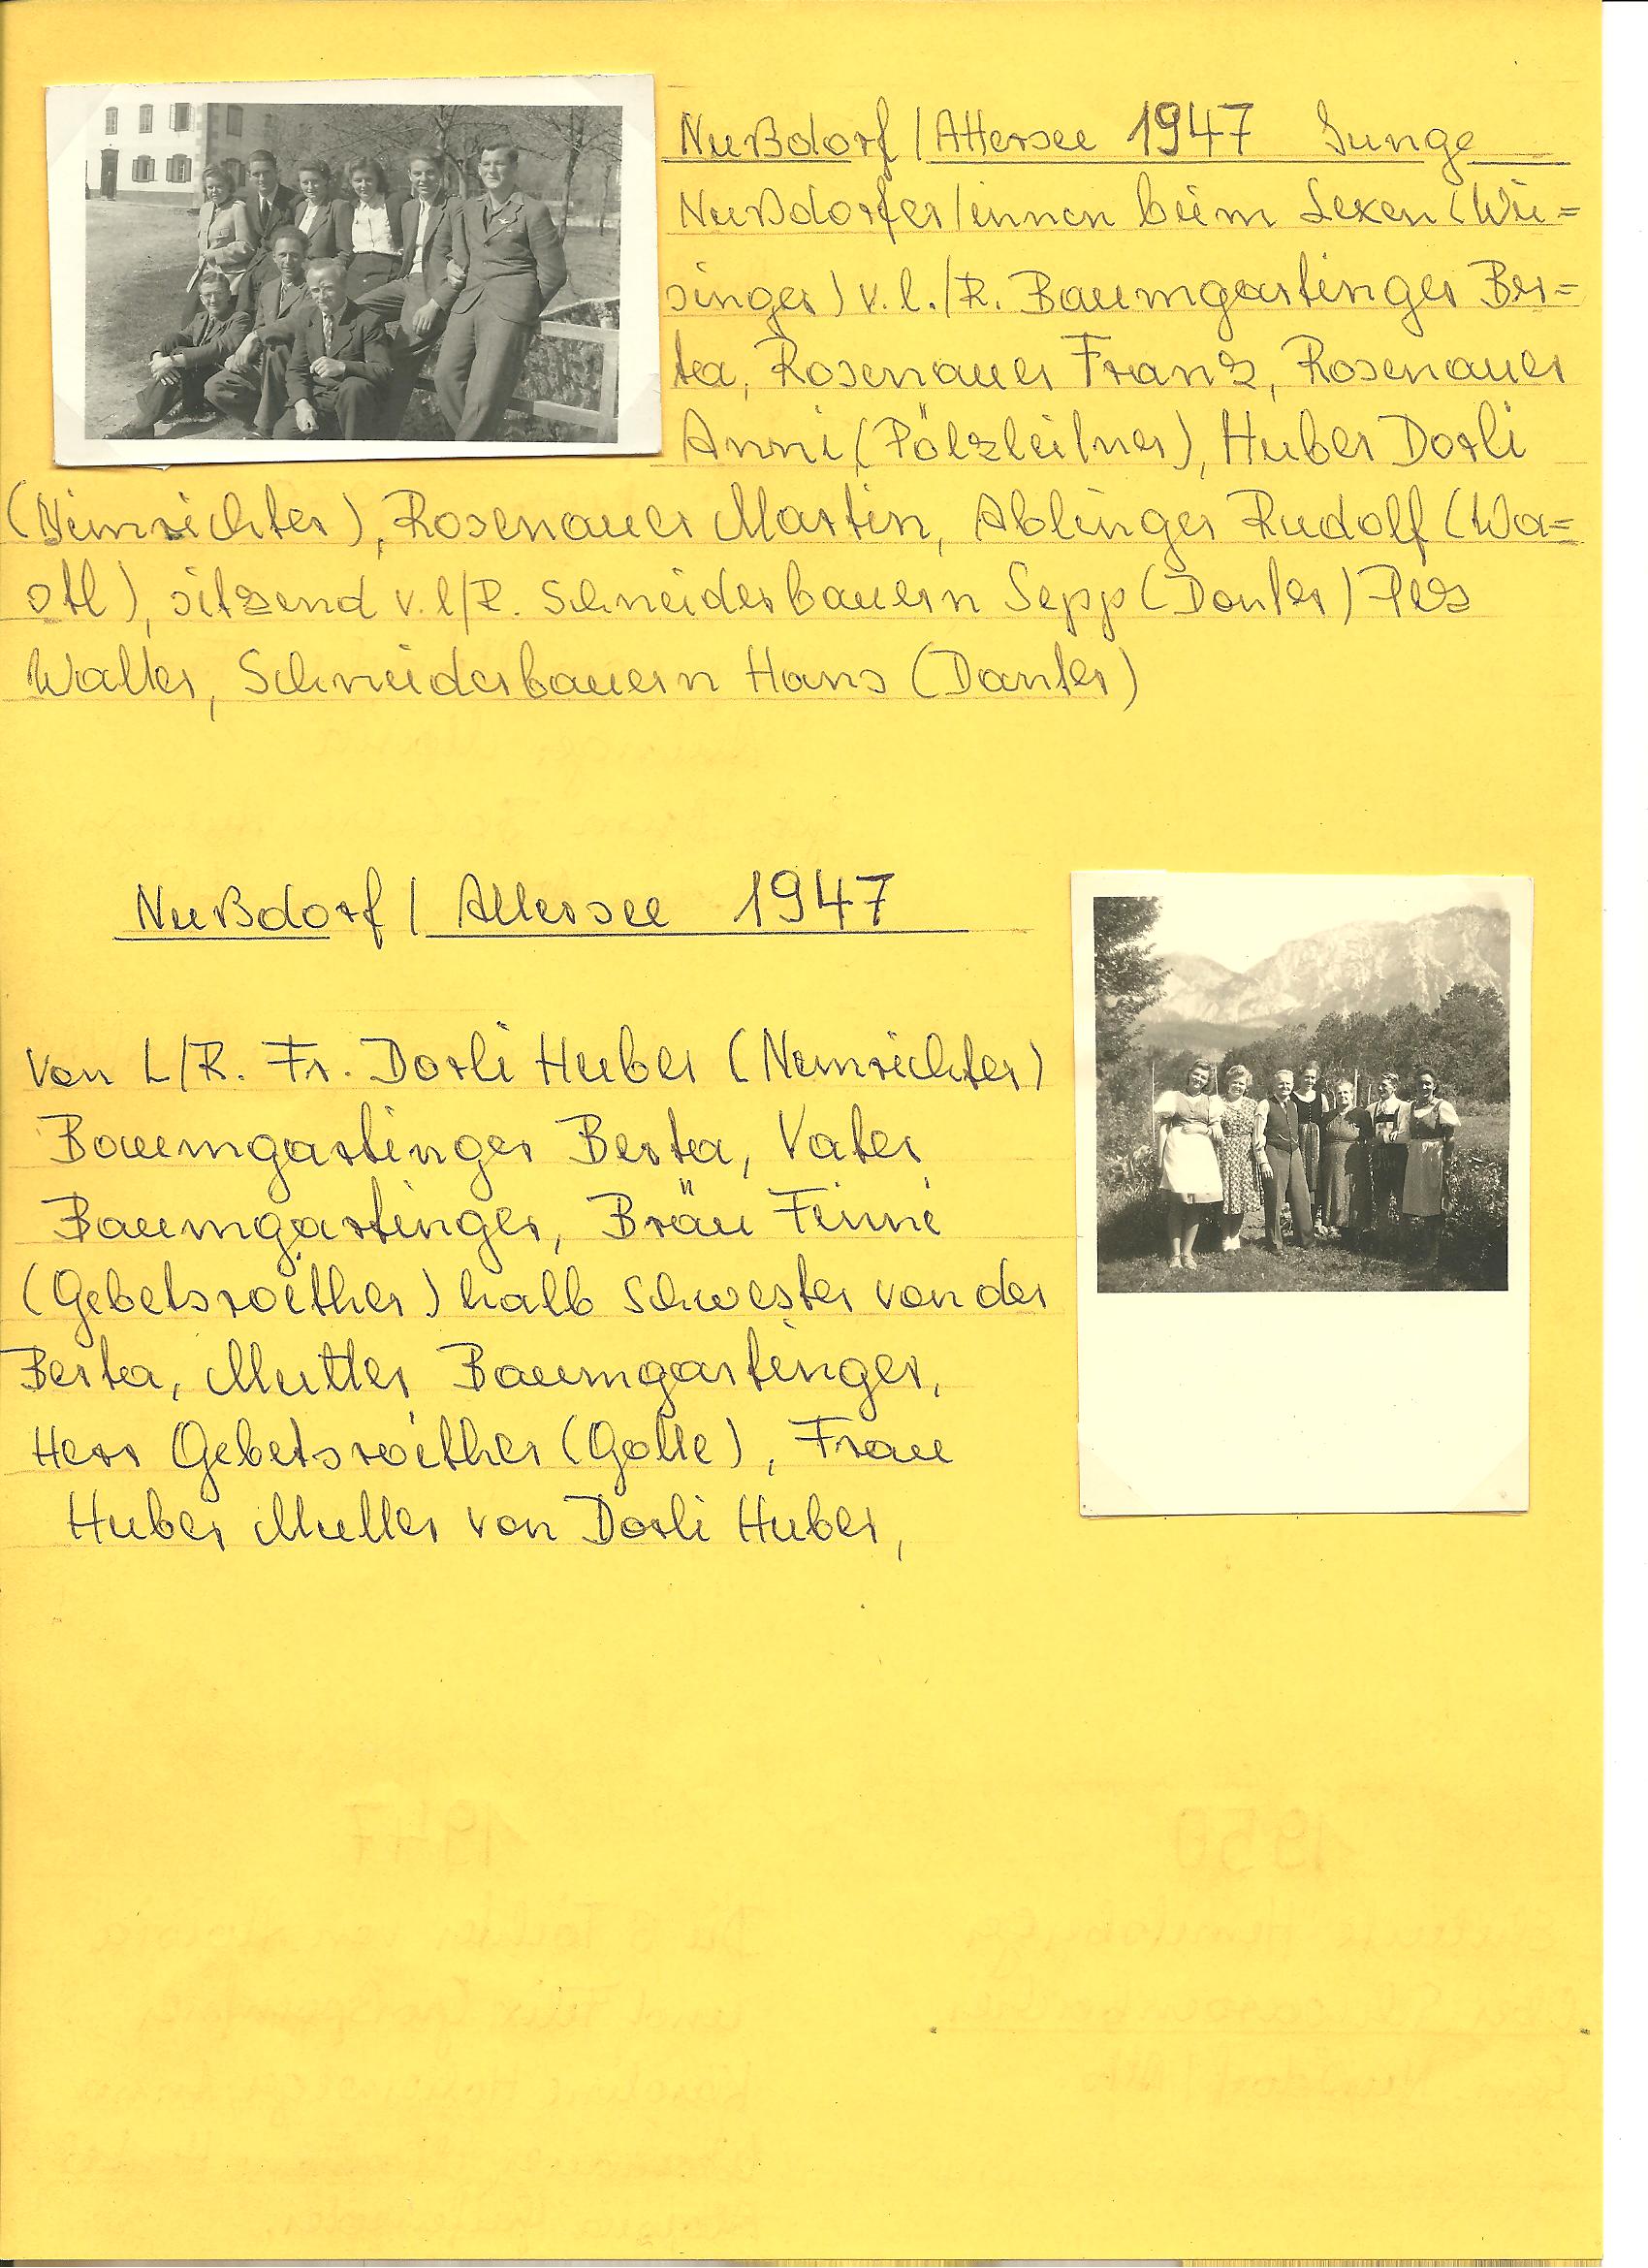 Nußdorf / Attersee 1947 Junge
Nußdorfer/innen beim Lexen (Wie=
singer) v. l./R. Baumgartinger Ber=
ta, Rosenauer Franz, Rosenauer
Anni, (Pölzleitner), Huber Dorli
(Nimrichter), Rosenauer Martin, Ablinger Rudolf (Wa=
stl), sitzend v. l/R. Schneiderbauern Sepp (Danter)
Walter, Schneiderbauern Hans (Danter)
Nußdorf / Attersee 1947
Von L/R. Fr. Dorli Huber (Nimrichter)
Baumgartinger Berta, Vater
Baumgartinger, Bräu Finni
(Gebetsroither) halb Schwester von der
Berta, Mutter Baumgartinger,
Herr Gebetsroither (Golle), Frau
Huber Mutter von Dorli Huber,
1947
1950